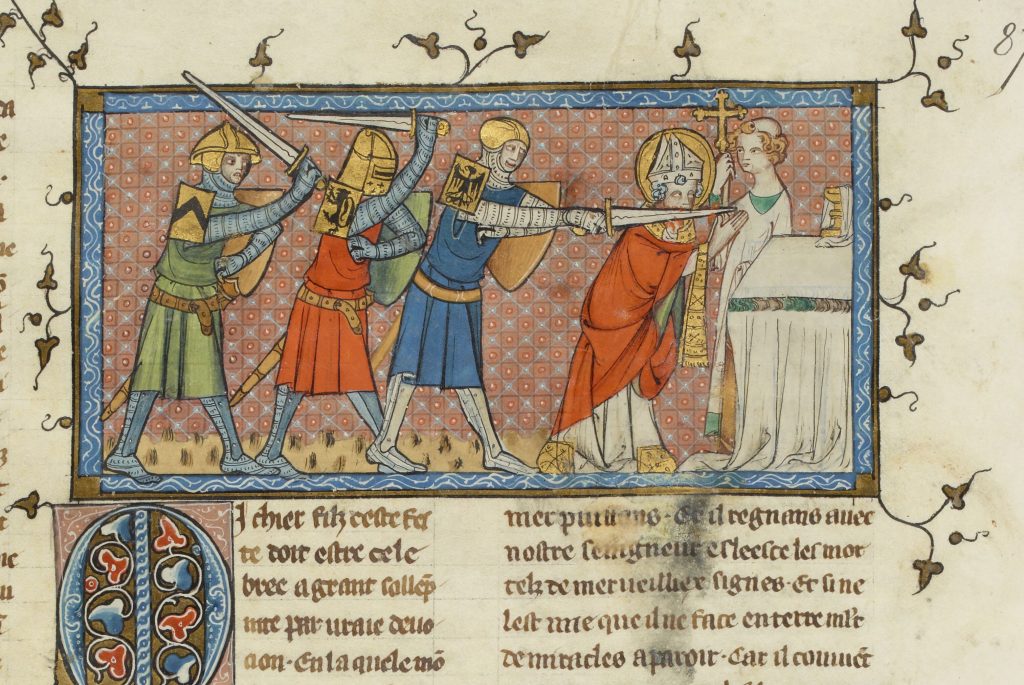 87
I chier filz ceste fes
te doit estre cele
bree a grant sollep
nite par uraie deuo
cion. En la quele mō
mer puissans. Et il regnans auec
nostre seingneur esleesce les mor
telz de merueilleux signes. Et si ne
lest mie que il ne face en terre
de miracles aparoir. Car il couuēt